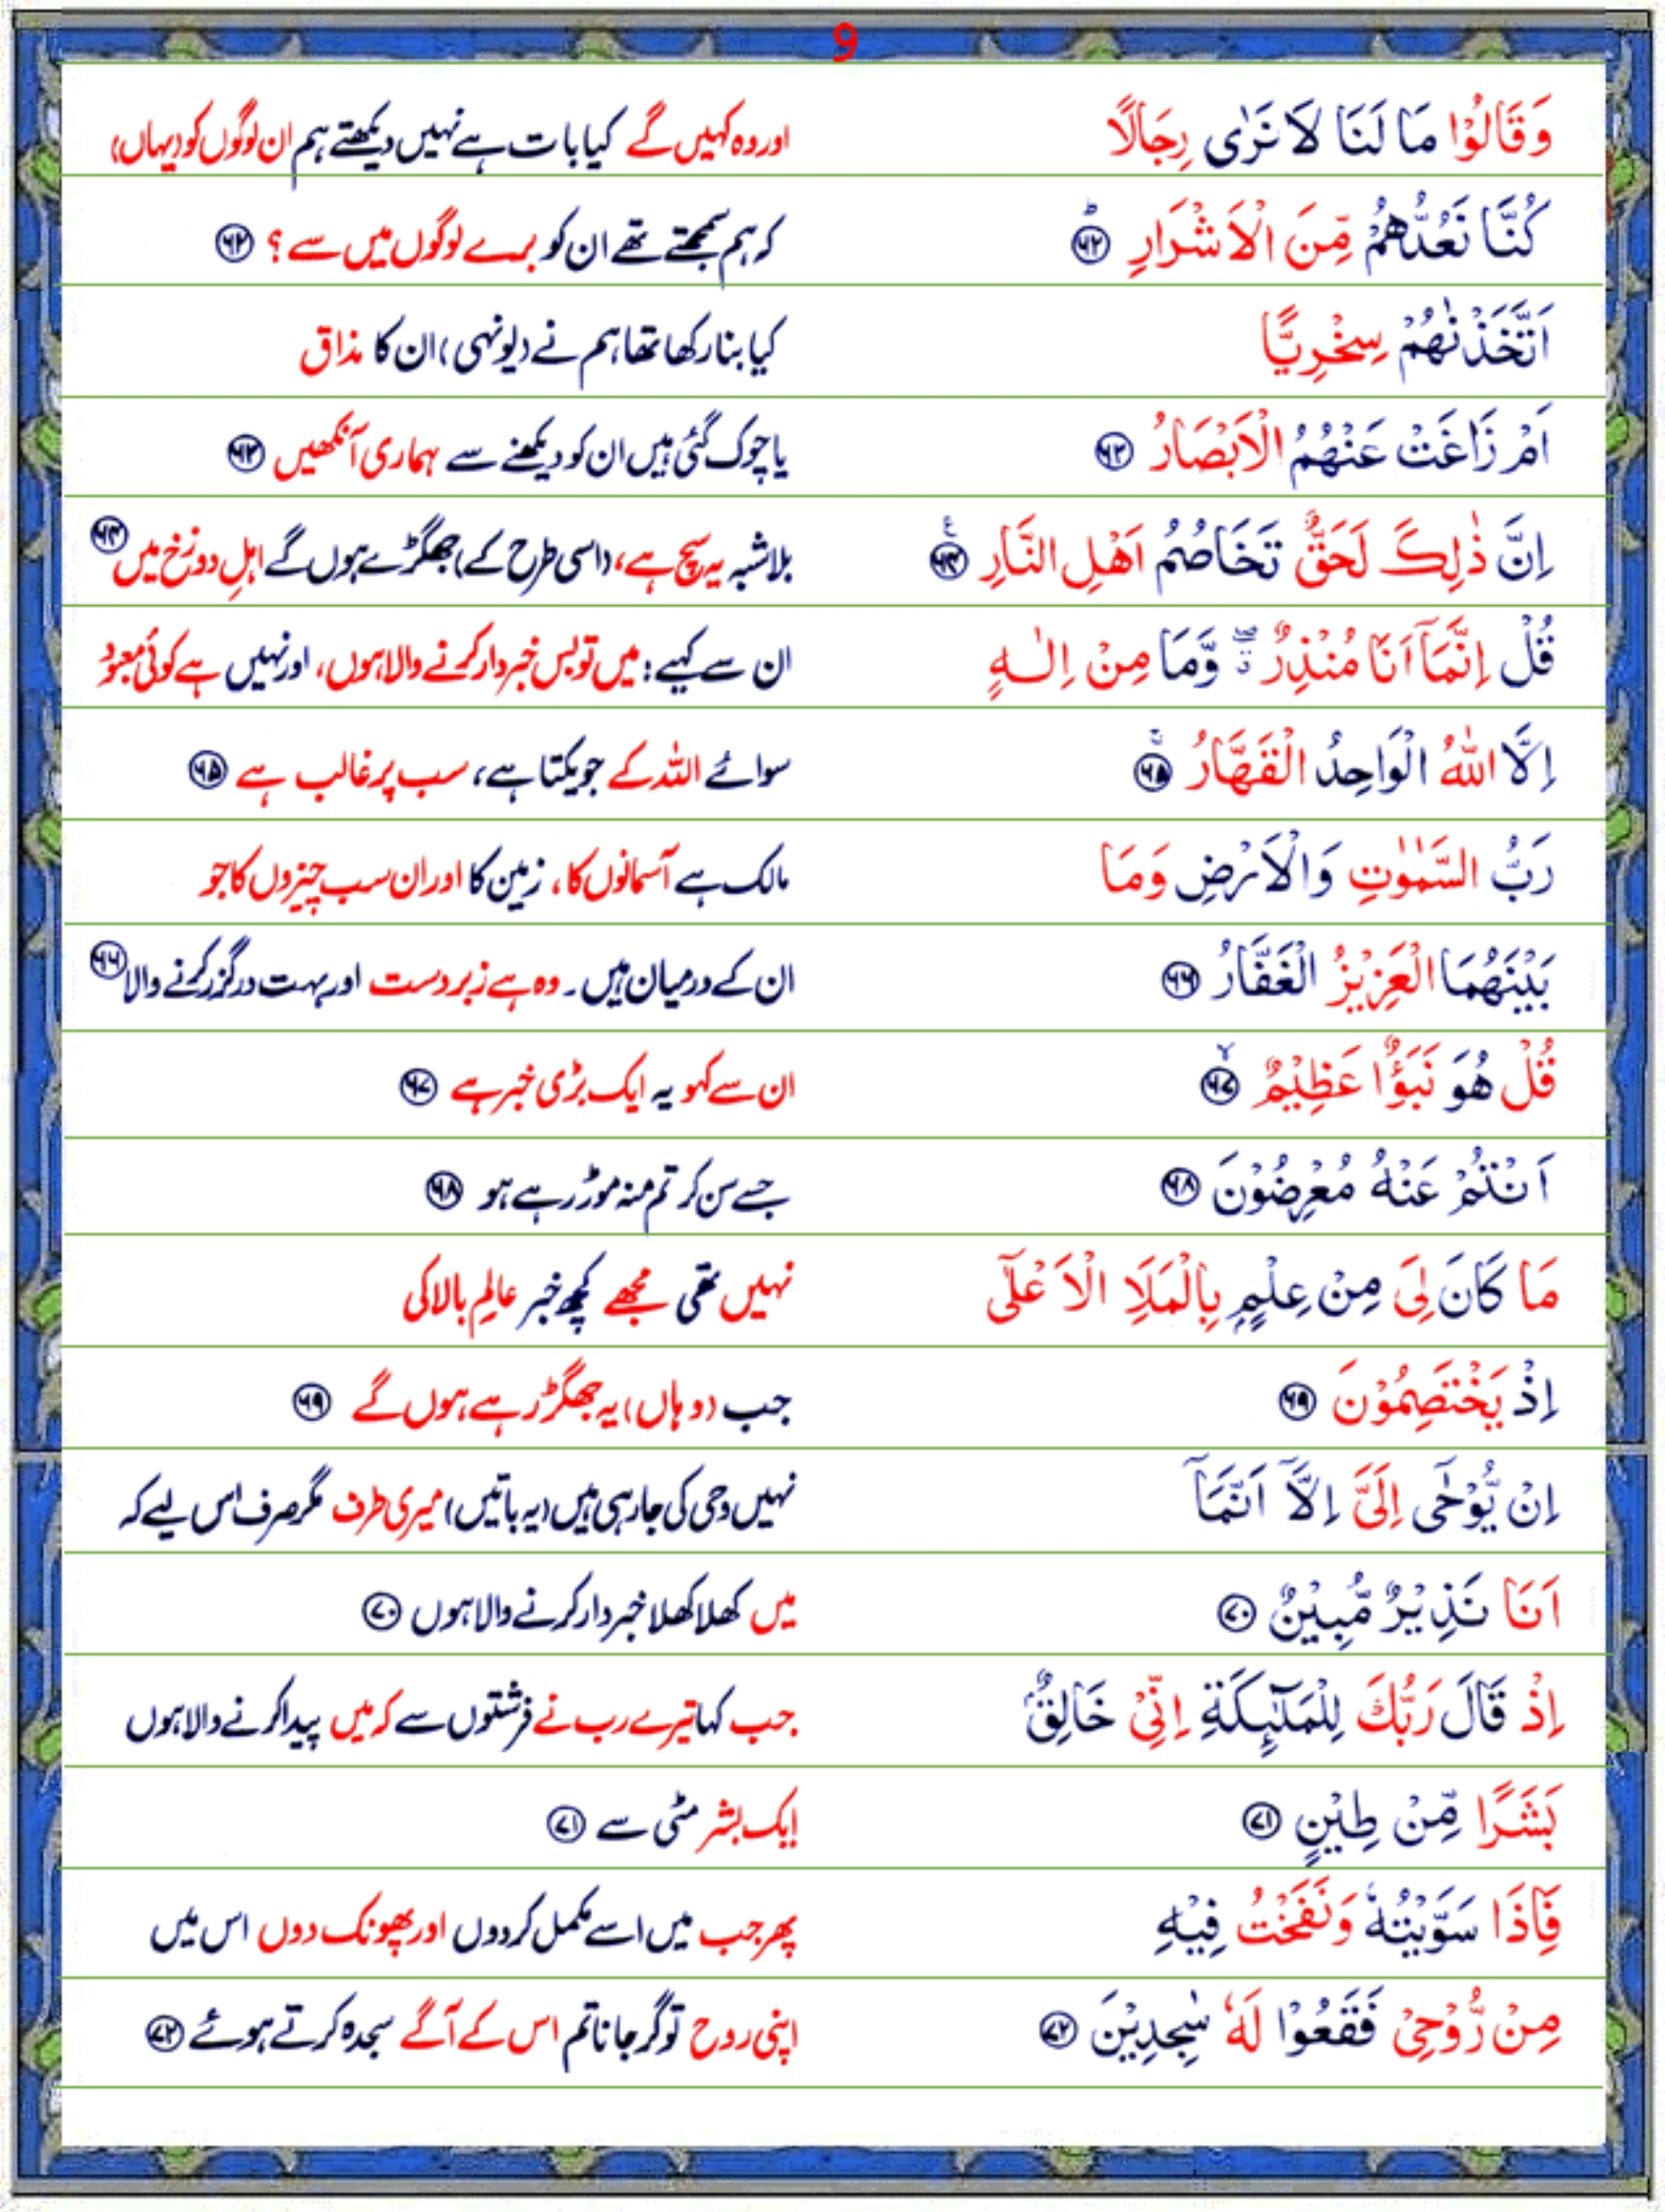 9
وَقَالُوْا مَا لَنَا لَا نَرٰى رِجَالًا اور وہ کہیں گے کیا بات ہے نہیں دیکھتے ہم ان لوگوں کو (یہاں)
كُنَّا نَعُدُّهُمْ مِّنَ الْاَشْرَارِ ؕ ۶۲ کہ ہم سمجھتے تھے ان کو برے لوگوں میں سے ؟ ۶۲
اَتَّخَذْنٰهُمْ سِخْرِيًّا کیا بنا رکھا تھا ہم نے (یونہی) ان کا مذاق
اَمْ زَاغَتْ عَنْهُمُ الْاَبْصَارُ ۶۳ یا چوک گئی ہیں ان کو دیکھنے سے ہماری آنکھیں ۶۳
اِنَّ ذٰلِكَ لَحَقٌّ تَخَاصُمُ اَهْلِ النَّارِ ۶۴ بلاشبہ یہ سچ ہے، (اسی طرح کے) جھگڑے ہوں گے اہلِ دوزخ میں ۶۴
قُلْ اِنَّمَاۤ اَنَا مُنْذِرٌ ۖ وَّمَا مِنْ اِلٰهٍ ان سے کہیے : میں تو بس خبردار کرنے والا ہوں، اور نہیں ہے کوئی معبود
اِلَّا اللّٰهُ الْوَاحِدُ الْقَهَّارُ ۶۵ سوائے اللہ کے جو یکتا ہے، سب پر غالب ہے ۶۵
رَبُّ السَّمٰوٰتِ وَالْاَرْضِ وَمَا مالک ہے آسمانوں کا، زمین کا اور ان سب چیزوں کا جو
بَيْنَهُمَا الْعَزِيْزُ الْغَفَّارُ ۶۶ ان کے درمیان ہیں۔ وہ ہے زبردست اور بہت درگزر کرنے والا ۶۶
قُلْ هُوَ نَبَؤٌا عَظِيْمٌ ۶۷ ان سے کہو یہ ایک بڑی خبر ہے ۶۷
اَنْتُمْ عَنْهُ مُعْرِضُوْنَ ۶۸ جسے سن کر تم منہ موڑ رہے ہو ۶۸
مَا كَانَ لِيَ مِنْ عِلْمٍۭ بِالْمَلَاِ الْاَعْلٰۤى نہیں تھی مجھے کچھ خبر عالمِ بالا کی
اِذْ يَخْتَصِمُوْنَ ۶۹ جب (وہاں) یہ جھگڑ رہے ہوں گے ۶۹
اِنْ يُّوْحٰۤى اِلَىَّ اِلَّاۤ اَنَّمَاۤ نہیں وحی کی جا رہی ہیں (یہ باتیں) میری طرف مگر صرف اس لیے کہ
اَنَا نَذِيْرٌ مُّبِيْنٌ ۷۰ میں کھلا کھلا خبردار کرنے والا ہوں ۷۰
اِذْ قَالَ رَبُّكَ لِلْمَلٰٓئِكَةِ اِنِّىْ خَالِقٌۢ جب کہا تیرے رب نے فرشتوں سے کہ میں پیدا کرنے والا ہوں
بَشَرًا مِّنْ طِيْنٍ ۷۱ ایک بشر مٹی سے ۷۱
فَاِذَا سَوَّيْتُهٗ وَنَفَخْتُ فِيْهِ پھر جب میں اسے مکمل کر دوں اور پھونک دوں اس میں
مِنْ رُّوْحِىْ فَقَعُوْا لَهٗ سٰجِدِيْنَ ۷۲ اپنی روح تو گر جانا تم اس کے آگے سجدہ کرتے ہوئے ۷۲